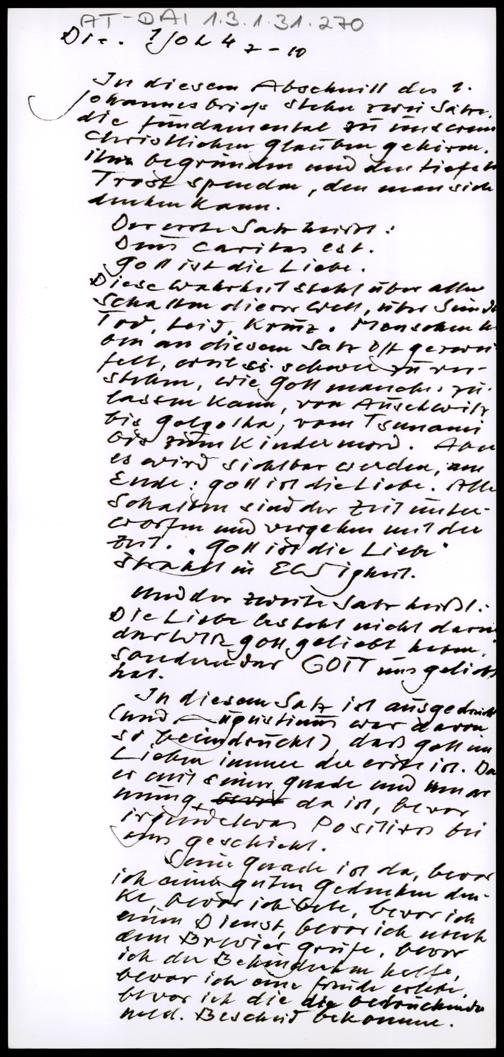 AT-DAI 1.3.1.31.270
Di. 1 Joh 4 7-10
In diesem Abschnitt des 1.
Johannesbriefs stehn zwei Sätze,
die fundamental zu unserem
christlichen Glauben gehören,
ihn begründen und den tiefsten
Trost spenden, den man sich
denken kann.
Der erste Satz heißt:
Deus caritas est.
Gott ist die Liebe.
Diese Wahrheit steht über allen
Schatten dieser Welt, über Sünde
Tod, Leid, Kreuz. Menschen
an diesem Satz oft gezwei-
felt, weil es schwer zu ver-
stehen, wie Gott manches zu-
lassen kann, von Auschwitz
bis Golgotha, vom Tsunami
bis zum Kindermord. Aber
es wird sichtbar werden, am
Ende: Gott ist die Liebe. Alle
Schatten sind der Zeit unter-
worfen und vergehen mit der
Zeit. "Gott ist die Liebe"
strahlt in Ewigkeit.
Und der zweite Satz heißt:
Die Liebe besteht nicht darin
das WIR Gott geliebt haben,
sondern das GOTT uns geliebt
hat.
In diesem Satz ist ausgedrückt
(und Augustinus war davon
so beeindruckt), daß Gott im
Lieben immer der erste ist. Da
er mit seiner Gnade und
da ist, bevor
irgendetwas Positives bei
uns geschieht.
Seine Gnade ist da, bevor
ich einen guten Gedanken den-
ke, bevor ich bete, bevor ich
einen Dienst, bevor ich nach
dem Brevier greife, bevor
ich den Behinderten helfe,
bevor ich eine Freude erlebe,
bevor ich die die bedrückenden
med. Bescheid bekomme.